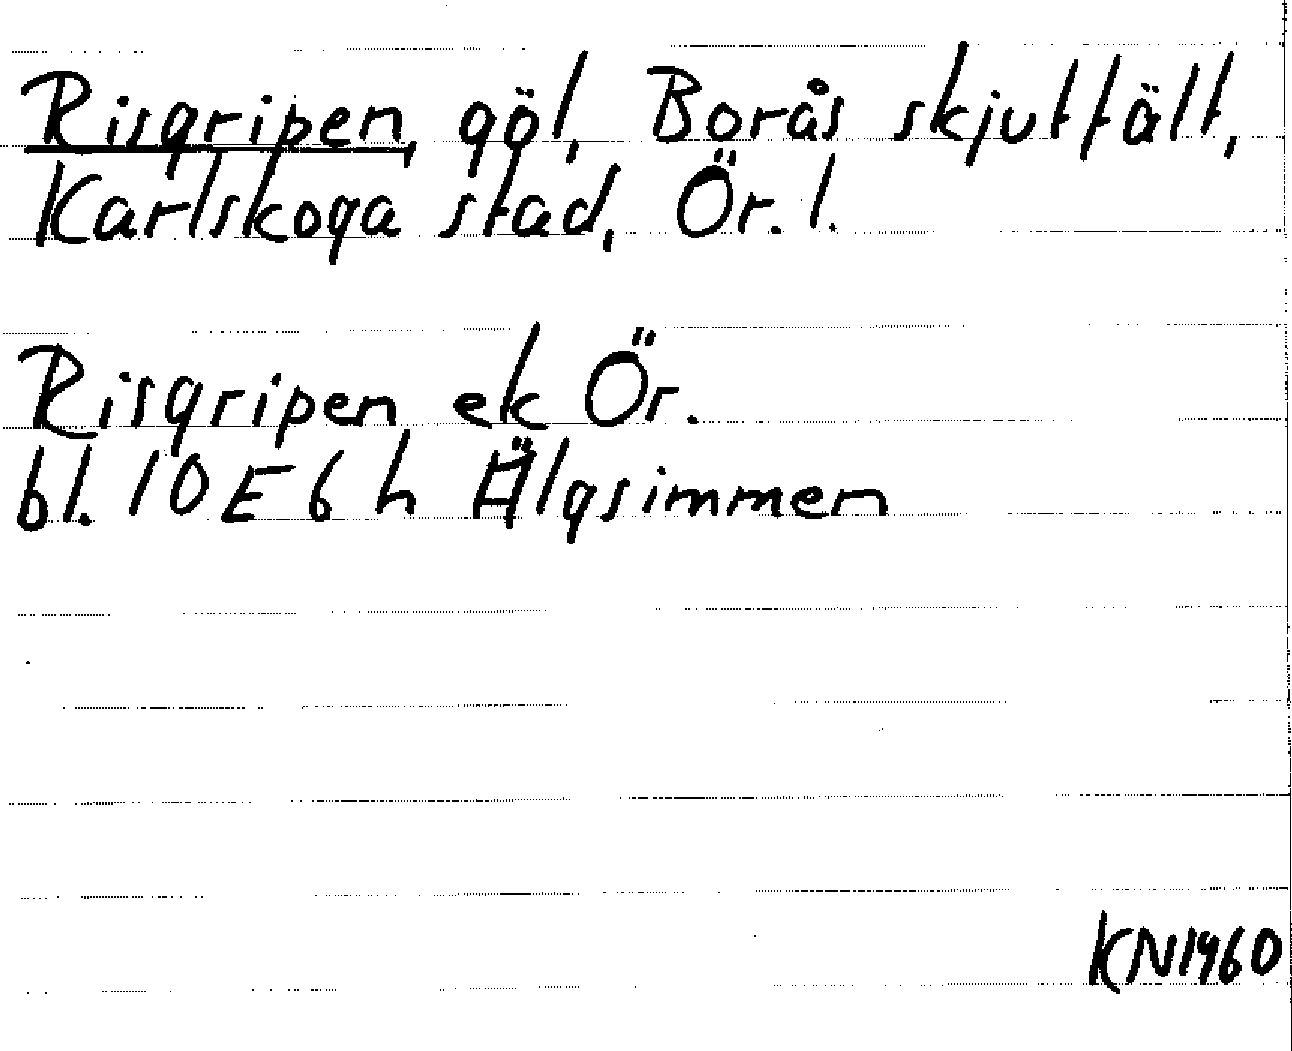 Risgripen, göl, Borås skjutfält,
Karlskoga stad, Ör. l.
Risgripen ek Ör.
bl. 10 E 6 h Älgsimmen
KN1960